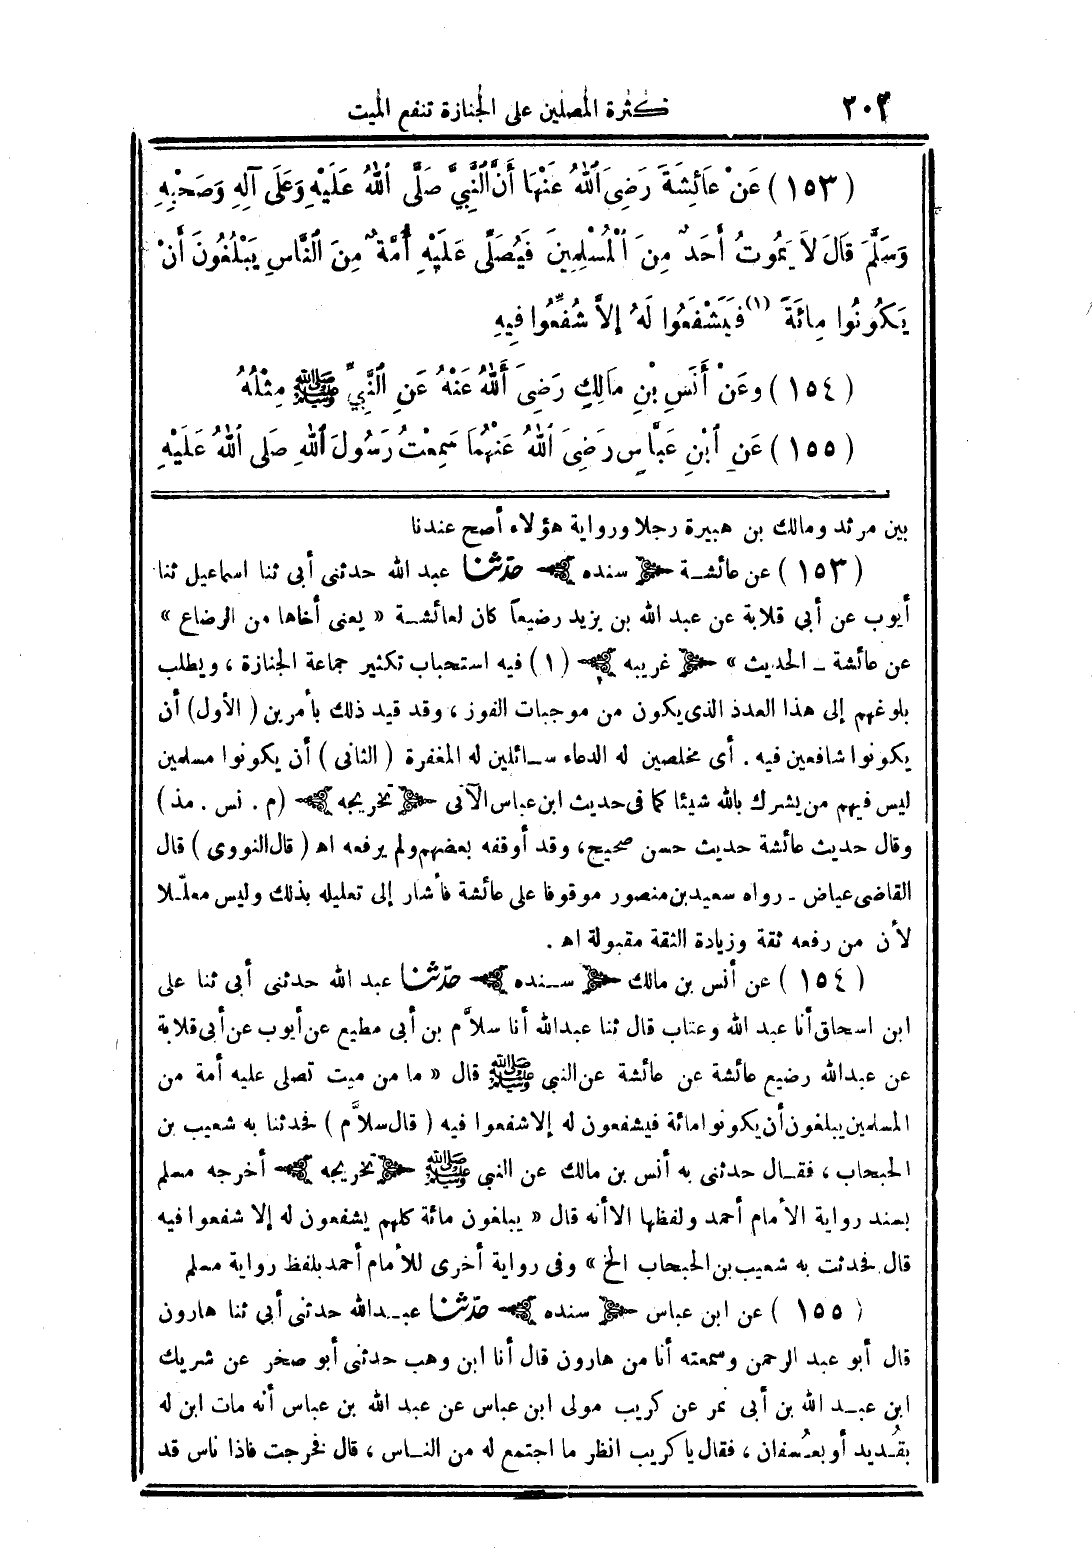 ٢٠٢ كثرة المصلين على الجنازة تنفع الميت
(١٥٣) عَنْ عَائِشَةَ رَضِىَ ٱللهُ عَنْهَا أَنَّ ٱلنَّبِيَّ صَلَّى ٱللهُ عَلَيْهِ وَعَلَى آلِهِ وَصَحْبِهِ
وَسَلَّمَ قَالَ لاَ يَمُوتُ أَحَدٌ مِنَ ٱلْمُسْلِمِينَ فَيُصَلَّى عَلَيْهِ أُمَّةٌ مِنَ ٱلنَّاسِ يَبْلُغُونَ أَنْ
يَكُونُوا مِائَةً (١) فَيَشْفَعُوا لَهُ إِلاَّ شُفِّعُوا فِيهِ
(١٥٤) وعَنْ أَنَسِ بْنِ مَالِكٍ رَضِىَ ٱللهُ عَنْهُ عَنِ ٱلنَّبِيِّ ﷺ مِثْلَهُ
(١٥٥) عَنِ ٱبْنِ عَبَّاسٍ رَضِىَ ٱللهُ عَنْهُمَا سَمِعْتُ رَسُولَ ٱللهِ صَلى ٱللهُ عَلَيْهِ
بين مرثد ومالك بن هبيرة رجلا ورواية هؤلاء أصح عندنا
(١٥٣) عن عائشة ﴿ سنده ﴾ حدّثنا عبد الله حدثنى أبى ثنا اسماعيل ثنا
أيوب عن أبي قلابة عن عبد الله بن يزيد رضيعاً كان لعائشة « يعنى أخاها من الرضاع »
عن عائشة ـ الحديث » ﴿ غريبه ﴾ (١) فيه استحباب تكثير جماعة الجنازة ، ويطلب
بلوغهم إلى هذا العدد الذى يكون من موجبات الفوز ، وقد قيد ذلك بأمرين (الأول) أن
يكونوا شافعين فيه . أى مخلصين له الدعاء سائلين له المغفرة (الثانى) أن يكونوا مسلمين
ليس فيهم من يشرك بالله شيئا كما فى حديث ابن عباس الآتى ﴿ تخريجه ﴾ (م . نس . مذ)
وقال حديث عائشة حديث حسن صحيح ، وقد أوقفه بعضهم ولم يرفعه اه (قال النووى) قال
القاضى عياض ـ رواه سعيد بن منصور موقوفا على عائشة فأشار إلى تعليله بذلك وليس معلّلا
لأن من رفعه ثقة وزيادة الثقة مقبولة اه .
(١٥٤) عن أنس بن مالك ﴿ سنده ﴾ حدّثنا عبد الله حدثنى أبى ثنا على
ابن اسحاق أنا عبد الله وعتاب قال ثنا عبدالله أنا سلاَّم بن أبى مطيع عن أيوب عن أبى قلابة
عن عبدالله رضيع عائشة عن عائشة عن النبى ﷺ قال « ما من ميت تصلى عليه أمة من
المسلمين يبلغون أن يكونوا مائة فيشفعون له إلا شفعوا فيه (قال سلاَّم) فحدثنا به شعيب بن
الحبحاب ، فقال حدثنى به أنس بن مالك عن النبى ﷺ ﴿ تخريجه ﴾ أخرجه مسلم
بسند رواية الأمام أحمد ولفظها الا أنه قال « يبلغون مائة كلهم يشفعون له إلا شفعوا فيه
قال فحدثت به شعيب بن الحبحاب الخ » وفى رواية أخرى للأمام أحمد بلفظ رواية مسلم
(١٥٥) عن ابن عباس ﴿ سنده ﴾ حدّثنا عبدالله حدثنى أبى ثنا هارون
قال أبو عبد الرحمن وسمعته أنا من هارون قال أنا ابن وهب حدثنى أبو صخر عن شريك
ابن عبد الله بن أبى نمر عن كريب مولى ابن عباس عن عبد الله بن عباس أنه مات ابن له
بقُديد أو بعُسفان ، فقال ياكريب انظر ما اجتمع له من الناس ، قال فخرجت فاذا ناس قد